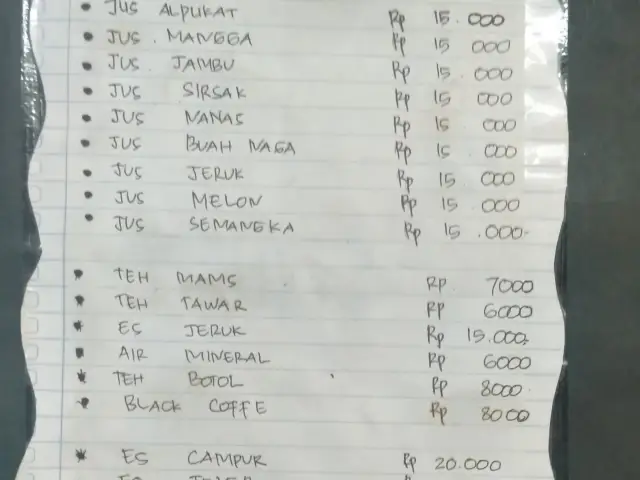 JUS ALPUKAT Rp 15.000
JUS. MANGGA Rp 15 000
JUS. JAMBU Rp 15.000
JUS SIRSAK Rp 15 000
JUS NANAS Rp 15 000
JUS BUAH NAGA Rp 15 000
JUS JERUK Rp 15 000
JUS MELON Rp 15.000
JUS SEMANGKA Rp 15.000.
TEH MANIS Rp 7000
TEH TAWAR RP 6000
ES JERUK Rp 15.000.
AIR MINERAL Rp 6000
TEH BOTOL RP 8000.
BLACK COFFE Rp 8000
ES CAMPUR Rp 20.000